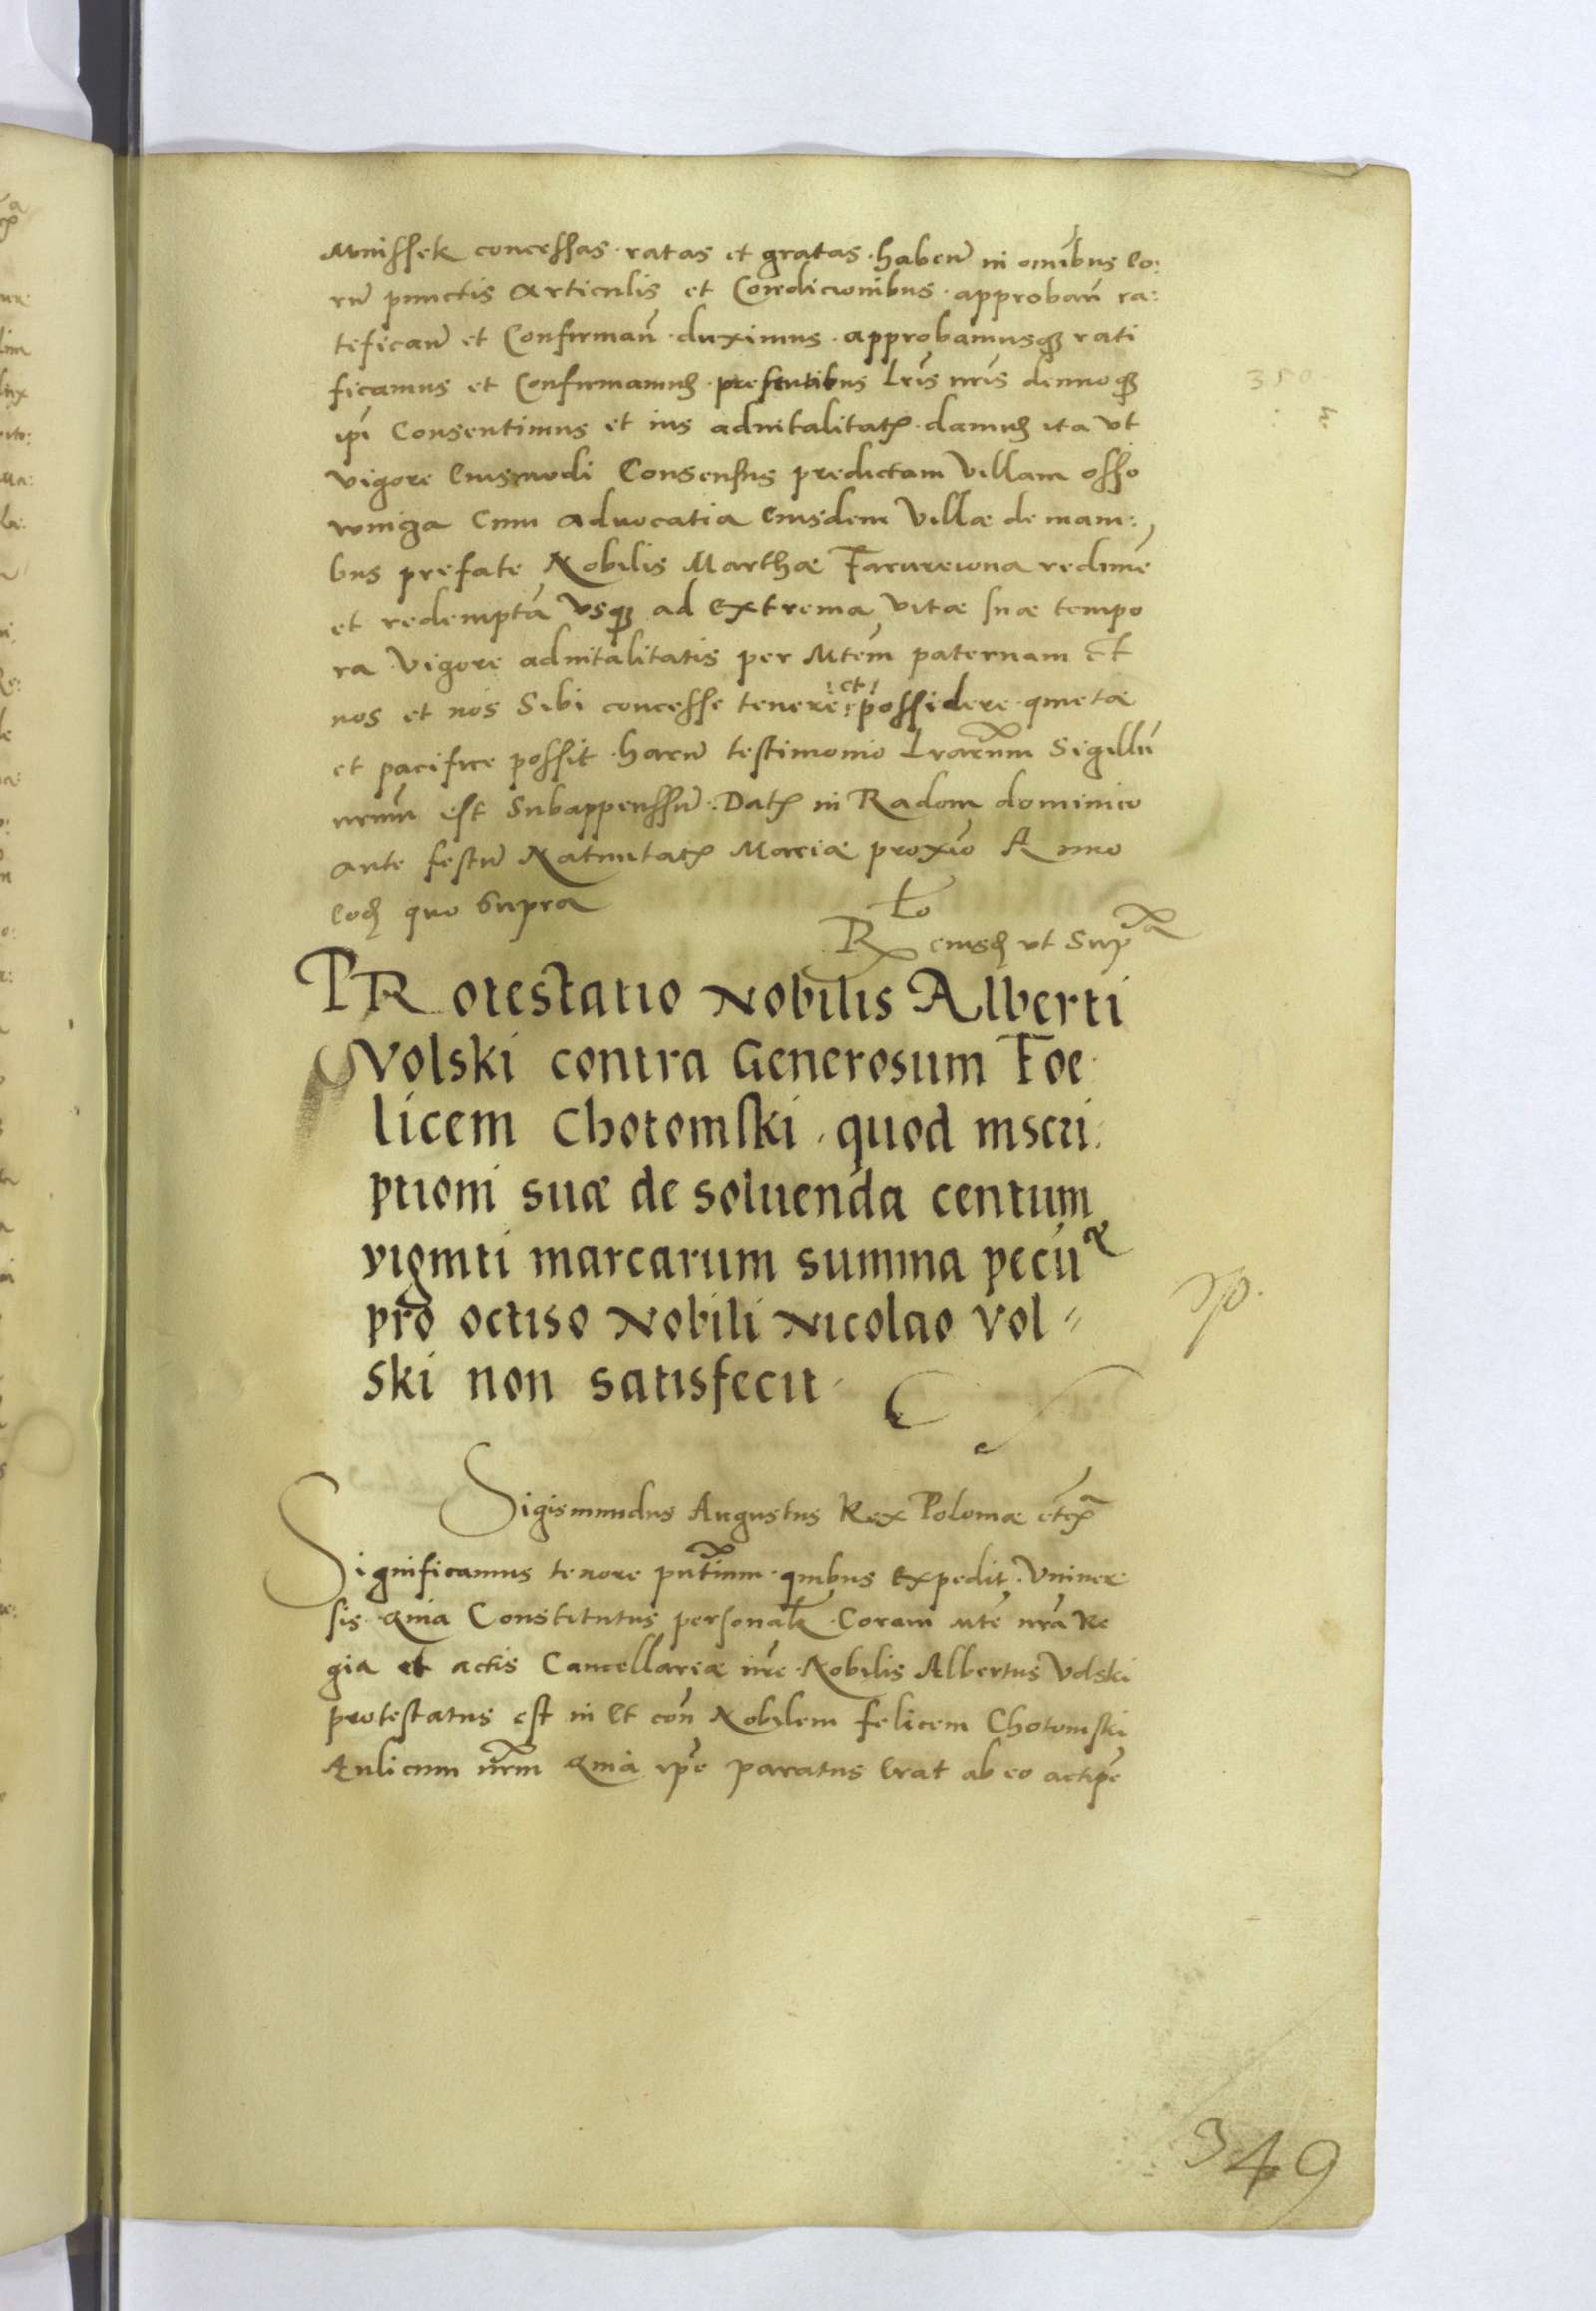 Mnissek concessas ratas et gratas haben̄ in om̄ibus eo:
rū punctis Articulis et Condicionibus approban̄ ra:
tefican̄ et Confirman̄ duximus approbamusqȝ rati
ficamus et Confirmamus presentibus Lrīs nrīs denuoqȝ
ipī Consentimus et ius aduitalitatꝭ damus ita vt
vigore Eiusmodi Consensus predictam Villam osso
wniga Cum aduocatia Eiusdem Villæ de mani:
bus prefate Nobilis Marthæ redimē
et redemptā vsqȝ ad Extrema vitæ suæ tempo
ra vigore aduitalitatis per Mtēm paternam Et
nos et nos Sibi concesse tenere et possidere quietæ
et pacifice possit harū testimonio Lrarum Sigillū
nrūm est Subappenssū Datꝭ in Radom dominico
ante festū Natiuitatꝭ Mariæ proxīo Anno
Eodꝫ quo Supra
Rło eiusdꝫ vt Supᵃ
PRotestatio Nobilis Alberti
Volski contra Generosum Foe
licem Chotomski quod inscri:
ptioni suæ de soluenda centum
viginti marcarum summa pecuæ
pro occiso Nobili Nicolao Vol=
ski non satisfecit
Sigismundus Augustus Rex Poloniæ etcᵃ
Significamus tenore pn̄tium quibus Expedit Vniuer
sis Quia Constitutus personalr̄ Coram Mtē nrā Re
gia et actis Cancellariæ nrē Nobilis Albertus Volski
protestatus est in Et con̄ Nobilem felicem Chotomski
Aulicum nrm̄ Quia ipē paratus Erat ab eo accipē
350
349